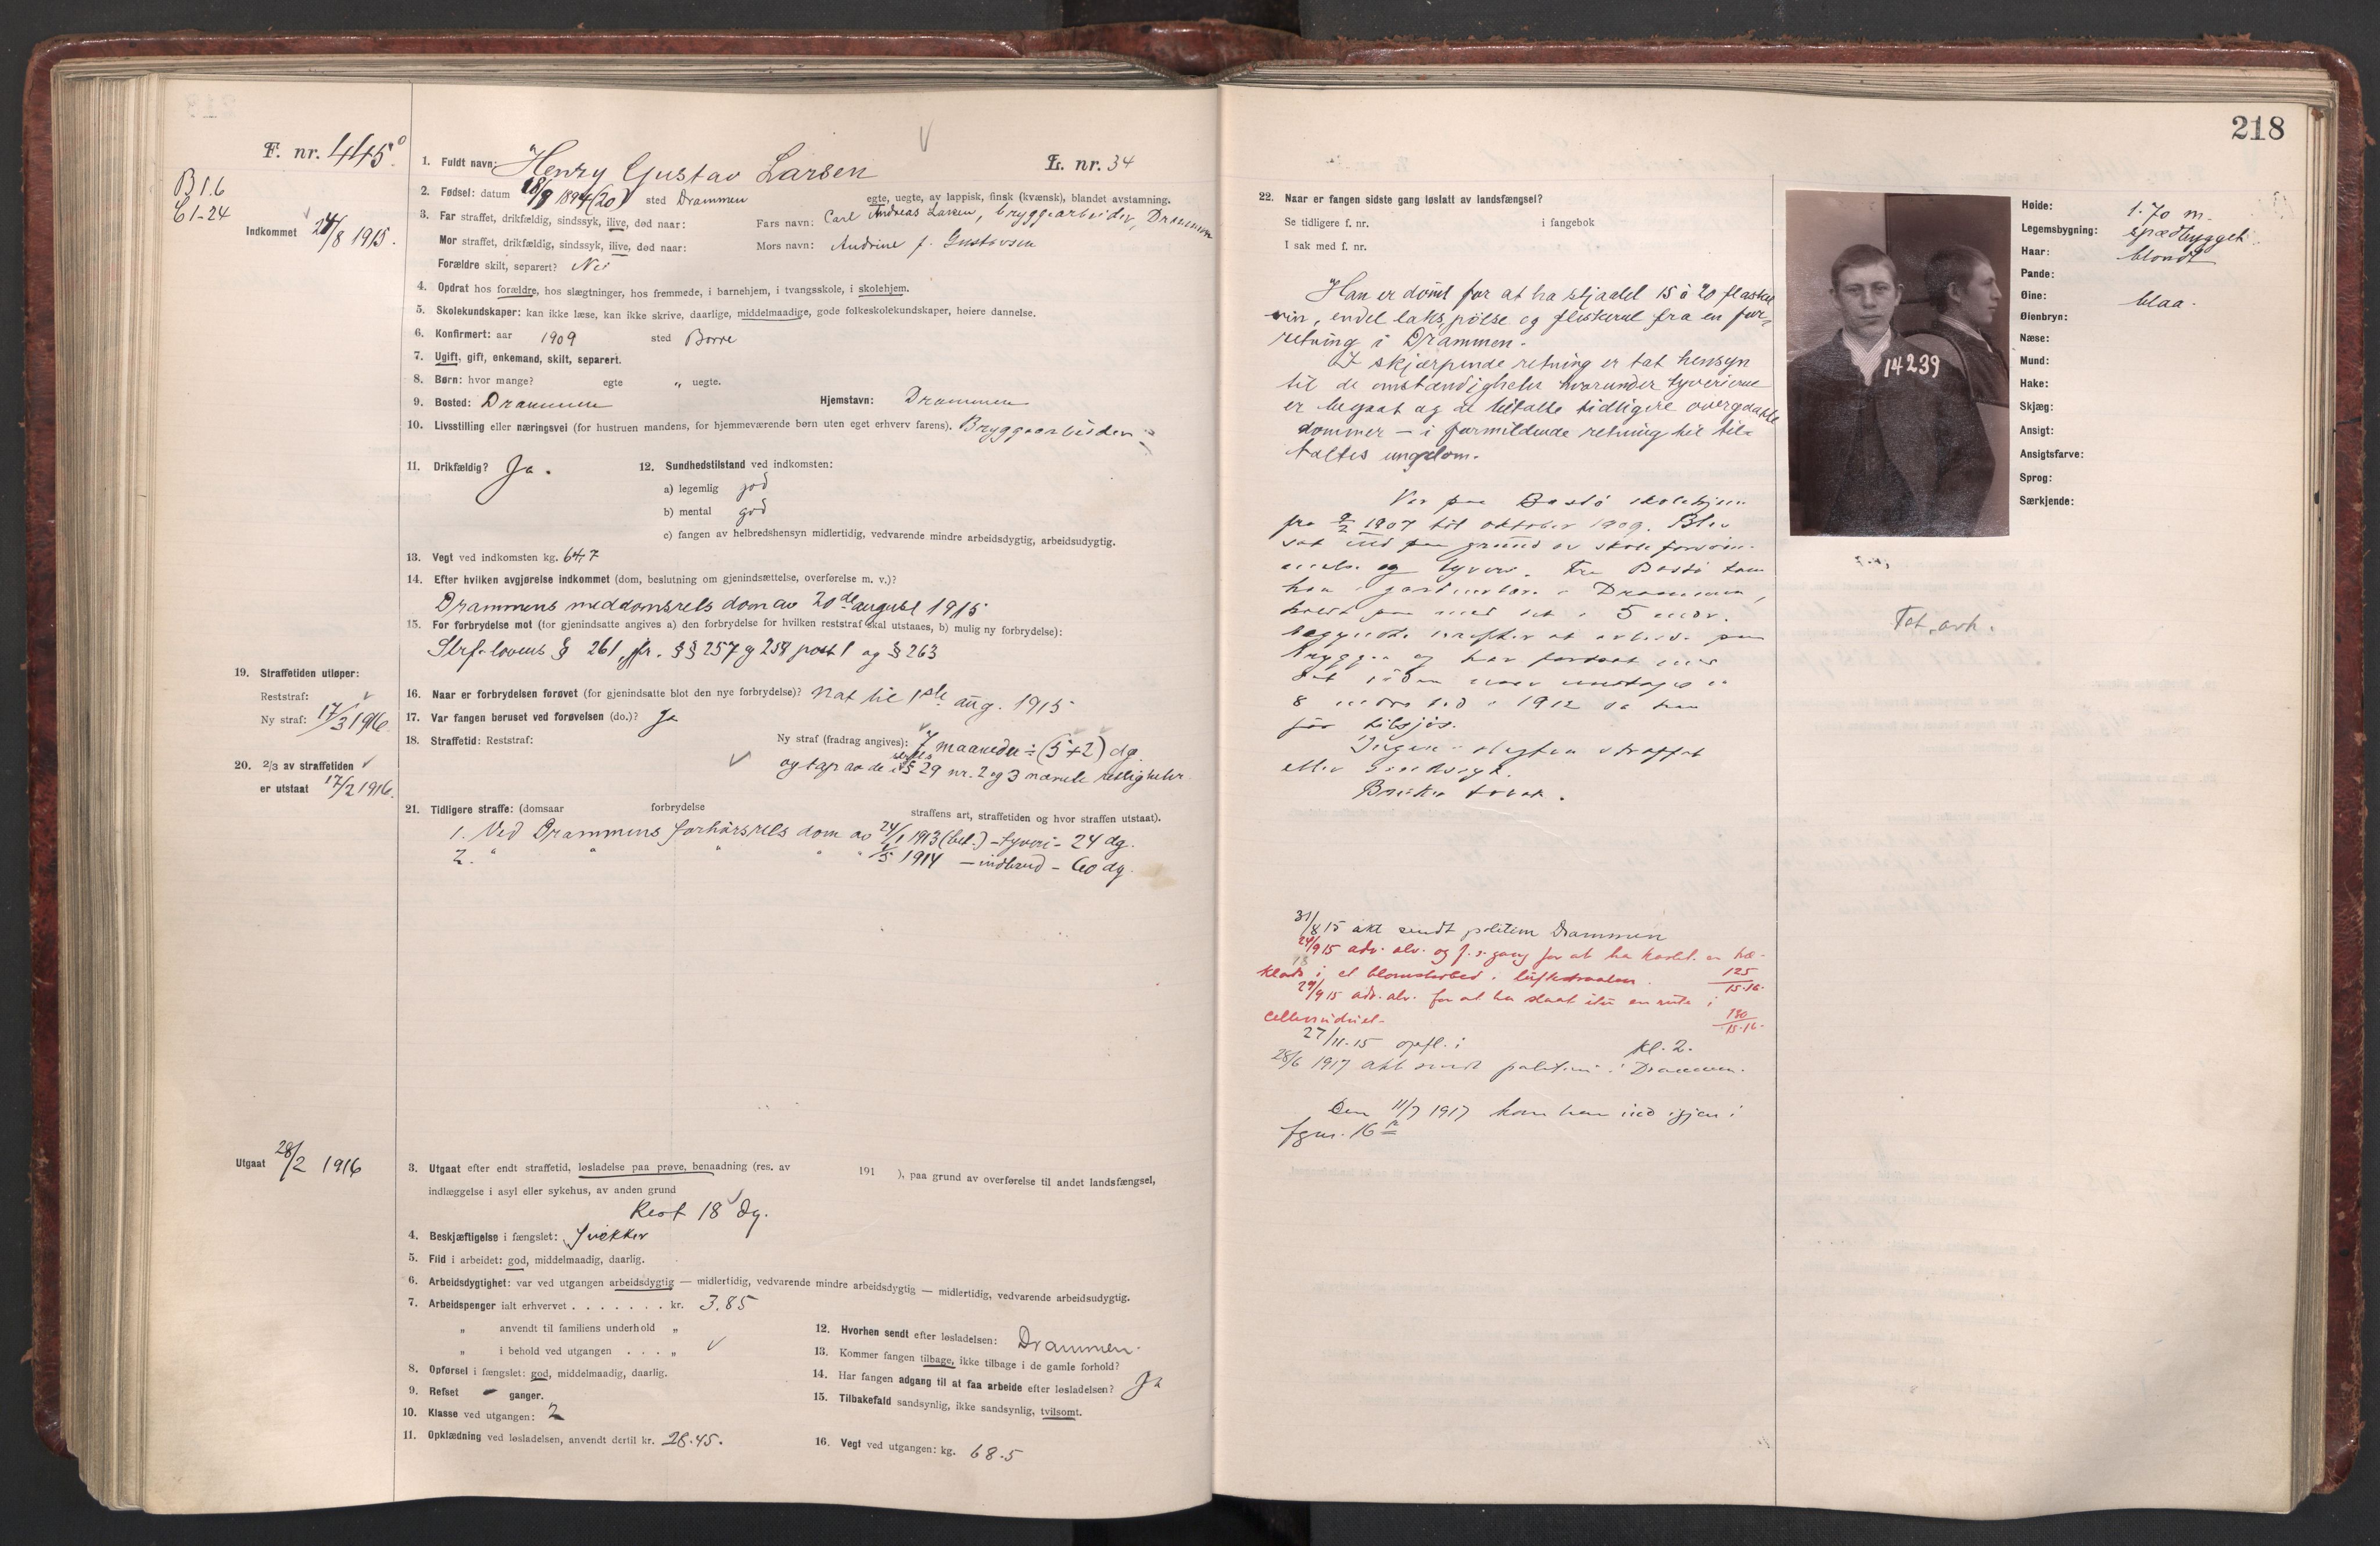 218
F. nr. 445
B 1.6
C 1-24
Indkommet 24/8 1915.
1. Fuldt navn: Henry Gustav Larsen L. nr. 34
2. Fødsel: datum 18/9 1894 (20) sted Drammen egte, uegte, av lappisk, finsk (kvænsk), blandet avstamning.
3. Far straffet, drikfældig, sindssyk, ilive, død naar: Fars navn: Carl Andreas Larsen, bryggearbeider, Drammen
Mor straffet, drikfældig, sindssyk, ilive, død naar: Mors navn: Andrine f. Gustavsen
Forældre skilt, separert? Nei
4. Opdrat hos forældre, hos slægtninger, hos fremmede, i barnehjem, i tvangsskole, i skolehjem.
5. Skolekundskaper: kan ikke læse, kan ikke skrive, daarlige, middelmaadige, gode folkeskolekundskaper, høiere dannelse.
6. Konfirmert: aar 1909 sted Borre
7. Ugift, gift, enkemand, skilt, separert.
8. Børn: hvor mange? egte „ uegte.
9. Bosted: Drammen Hjemstavn: Drammen
10. Livsstilling eller næringsvei (for hustruen mandens, for hjemmeværende børn uten eget erhverv farens). Bryggearbeider
11. Drikfældig? Ja. 12. Sundhedstilstand ved indkomsten:
a) legemlig god
b) mental god
c) fangen av helbredshensyn midlertidig, vedvarende mindre arbeidsdygtig, arbeidsudygtig.
13. Vegt ved indkomsten kg. 64,7
14. Efter hvilken avgjørelse indkommet (dom, beslutning om gjenindsættelse, overførelse m. v.)?
Drammens meddomsrets dom av 20de august 1915
15. For forbrydelse mot (for gjenindsatte angives a) den forbrydelse for hvilken reststraf skal utstaaes, b) mulig ny forbrydelse):
Strf.lovens § 261, jfr. §§ 257 og 258 post 1 og § 263
16. Naar er forbrydelsen forøvet (for gjenindsatte blot den nye forbrydelse)? Nat til 1ste aug. 1915
17. Var fangen beruset ved forøvelsen (do.)? Ja
18. Straffetid: Reststraf: Ny straf (fradrag angives): 7 maaneder ÷ (5+2) dg.
og tap av de i strfls § 29 nr. 2 og 3 nævnte rettigheter.
19. Straffetiden utløper:
Reststraf:
Ny straf: 17/3 1916.
20. 2/3 av straffetiden
er utstaat 17/2 1916.
21. Tidligere straffe: (domsaar forbrydelse straffens art, straffetiden og hvor straffen utstaat).
1. Ved Drammens forhørsrets dom av 24/1 1913 (bet.) - tyveri - 24 dg.
2. " " " " " 1/5 1914 - indbrud - 60 dg.
Utgaat 28/2 1916
3. Utgaat efter endt straffetid, løsladelse paa prøve, benaadning (res. av 191 ), paa grund av overførelse til andet landsfængsel,
indlæggelse i asyl eller sykehus, av anden grund
Rest 18 dg.
4. Beskjæftigelse i fængslet:
5. Flid i arbeidet: god, middelmaadig, daarlig.
6. Arbeidsdygtighet: var ved utgangen arbeidsdygtig — midlertidig, vedvarende mindre arbeidsdygtig — midlertidig, vedvarende arbeidsudygtig.
7. Arbeidspenger ialt erhvervet . . . . . . . kr. 3.85
„ anvendt til familiens underhold „
„ i behold ved utgangen . . . „
8. Opførsel i fængslet: god, middelmaadig, daarlig.
9. Refset - ganger.
10. Klasse ved utgangen: 2
11. Opklædning ved løsladelsen, anvendt dertil kr. 28.45.
12. Hvorhen sendt efter løsladelsen: Drammen.
13. Kommer fangen tilbage, ikke tilbage i de gamle forhold?
14. Har fangen adgang til at faa arbeide efter løsladelsen? Ja
15. Tilbakefald sandsynlig, ikke sandsynlig, tvilsomt.
16. Vegt ved utgangen: kg. 68.5
22. Naar er fangen sidste gang løslatt av landsfængsel?
Se tidligere f. nr. i fangebok
I sak med f. nr.
Han er dømt for at ha stjaalet 15 à 20 flasker
vin, endel laks, pølse og fleskerul fra en for-
retning i Drammen.
I skjærpende retning er tat hensyn
til de omstændigheter hvorunder tyverierne
er begaat og de tiltalte tidligere overgaatte
dommer — i formildende retning til til-
taltes ungdom.
Var paa Bastø skolehjem
fra 9/2 1907 til oktober 1909. Blev
sat ind paa grund av skoleforsøm-
melse og tyveri. Fra Bastø kom
han i gartnerlære i Drammen,
holdt paa med det i 5 mdr.
begyndte derefter at arbeide paa
brygga og har fortsat med
det siden naar undtages
8 mdrs tid i 1912 da han
for tilsjøs.
Ingen i slegten straffet
eller sindssyk.
Bruker tobak.
31/8 15 akt sendt politim Drammen
24/9 15 adv. alv. og f. s. gang for at ha kastet en
i et blomsterbed i luftestraalen. 125/15-16.
29/9 15 adv. alv. for at ha slaat itu en rute i
cellevinduet. 180/15-16.
27/11-15 opfl. i kl. 2.
28/6 1917 akt sendt politim. i Drammen.
Den 11/7 1917 kom han ind igjen i
fgnr. 16
14239
Høide: 1.70 m.
Legemsbygning: spædbygget
Haar: blondt
Pande:
Øine: blaa.
Øienbryn:
Næse:
Mund:
Hake:
Skjæg:
Ansigt:
Ansigtsfarve:
Sprog:
Særkjende:
Tat. arh.